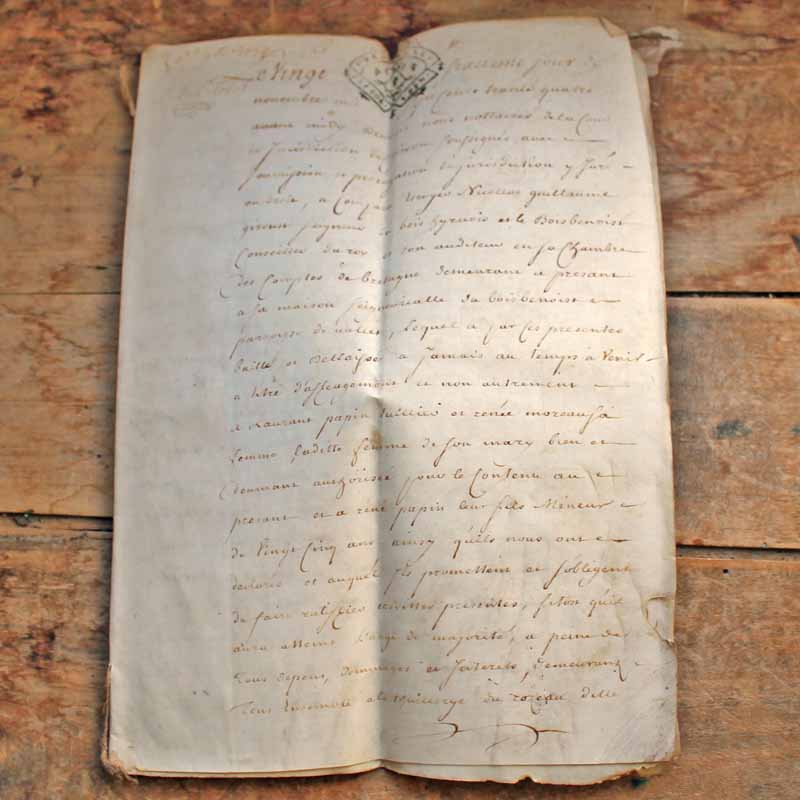 Le Vingt traizieme jour de
novembre mil cents trante quatre
avant midy devant nous nottaires de la Cour
et Jurisdiction de soussignés avec
soumission et prorogation de jurisdiction y Juré
en droit, a Comparu Nicollas guillaume
giroust seigneur du bois hyruois et le Boisbenoist
Conseiller du roy et son auditeur en sa Chambre
des Comptes de bretagne demeurant a presant
a sa maison seigneurialle du boisbenoist
paroisse de vallet, Lequel a par ces presentes
baillé et dellaissé a jamais au temps à Venir
a titre d'affeagement et non autrement
a Laurant papin tuillier et renée moreau sa
femme Laditte femme de son mary bien et
deumant authorisée pour le Contenu au
presant et a rené papin leur fils Mineur
de Vingt Cinq ans ainsy qu'ils nous ont
declaré et auquel ils promettent et s'oblegent
de faire ratiffier cesittes presentes, sitost qu'il
aura atteint L'aage de majorité, a peine de
tous depens, dommages et Interets, demeurant
tous Ensemble a la tuillerye du rozeau ditte